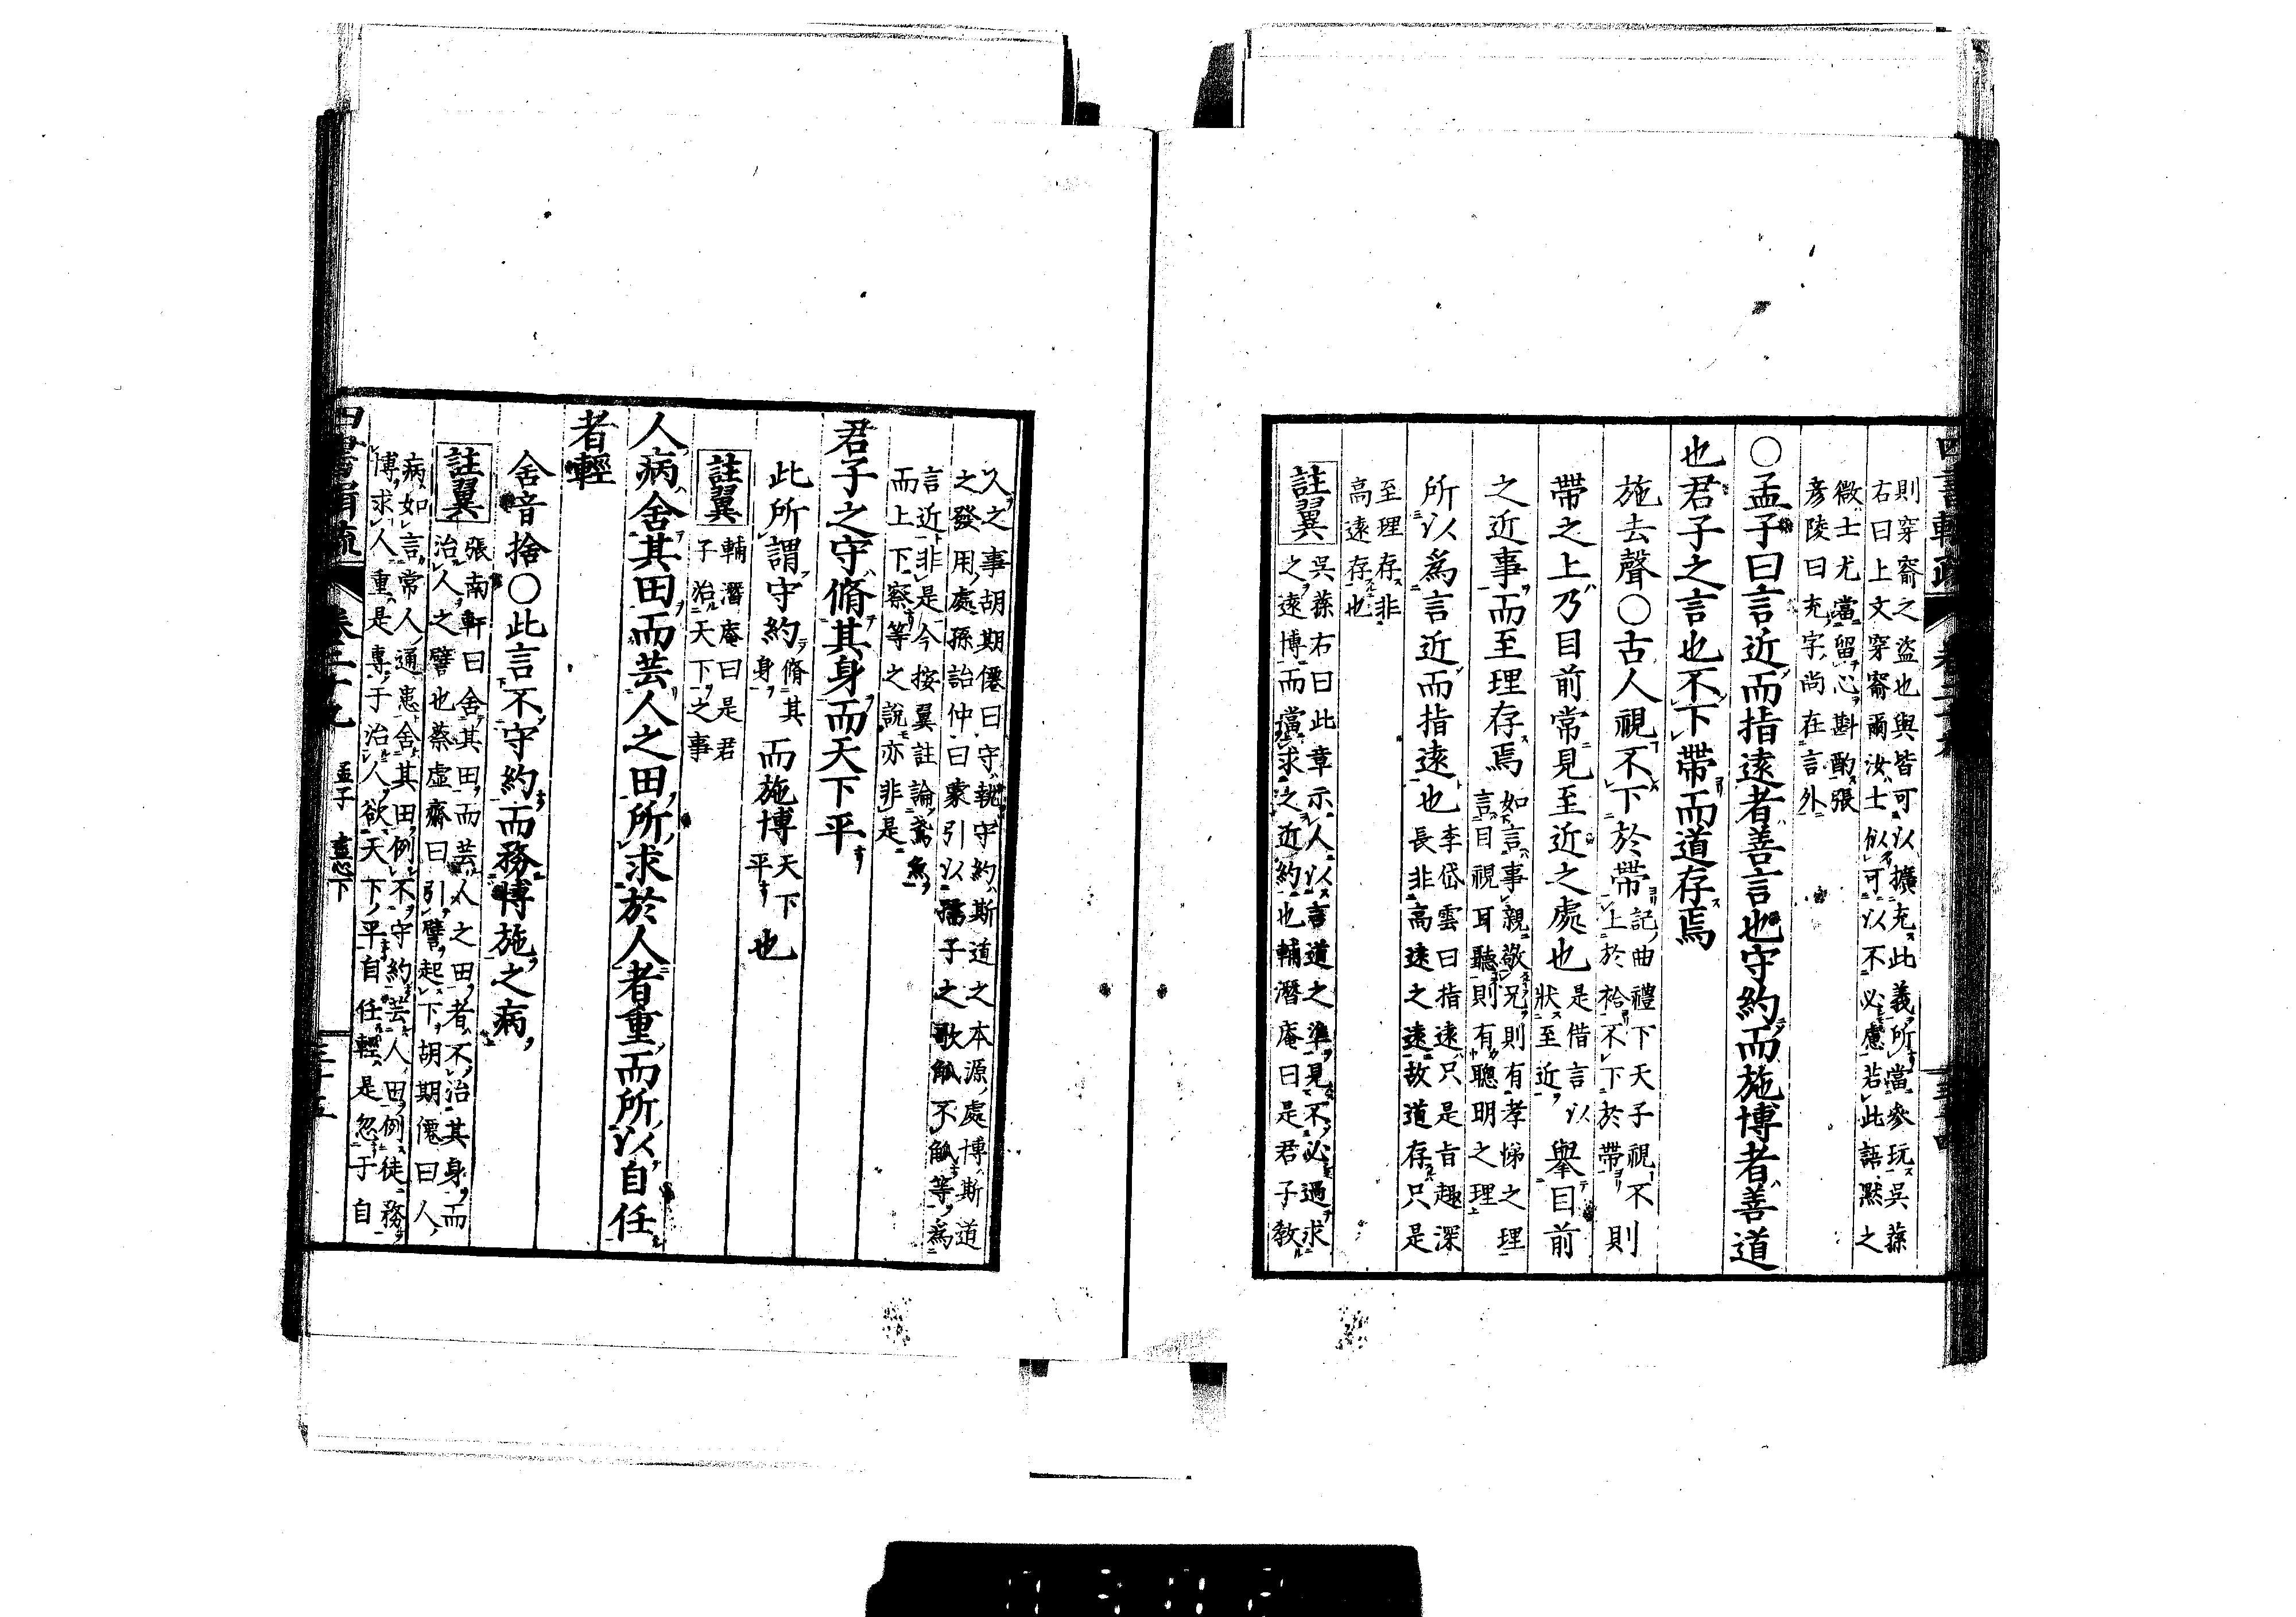 則穿窬之盜也與皆可以擴充此義所當參玩吳蓀
右曰上文穿窬爾汝士似可以不必慮若此語默之
微士尤當留心斟酌張
彥陵曰充字尚在言外
○孟子曰言近而指遠者善言也守約而施博者善道
也君子之言也不下帶而道存焉
施去聲○古人視不下於帶
記曲禮下天子視不
上於袷不下於帶
則
帶之上乃目前常見至近之處也
是借言以
狀至近
舉目前
之近事而至理存焉
如言事親敬兄則有孝悌之理
言目視耳聽則有聰明之理
所以爲言近而指遠也
李岱雲曰指遠只是旨趣深
長非高遠之遠故道存只是
至理存非
高遠存也
註翼
吳蓀右曰此章示人以言道之準見不必過求
之遠博而當求之近約也輔潛庵曰是君子敎
人之事胡期僊曰守執守約斯道之本源處博斯道
之發用處孫詒仲曰蒙引以孺子之歌觚不觚等爲
言近非是今按翼註論鳶魚
而上下察等之說亦非是
君子之守脩其身而天下平
此所謂守約
脩其
身
而施博
天下
平
也
註翼
輔潛庵曰是君
子治天下之事
人病舍其田而芸人之田所求於人者重而所以自任
者輕
舍音捨○此言不守約而務博施之病
註翼
張南軒曰舍其田而芸人之田者不治其身而
治人之譬也蔡虛齋曰引譬起下胡期僊曰人
病如言常人通患舍其田例不守約芸人田例徒務
博求人重是專于治人欲天下平自任輕是忽于自
卷二十九
孟子 盡心下
三十五